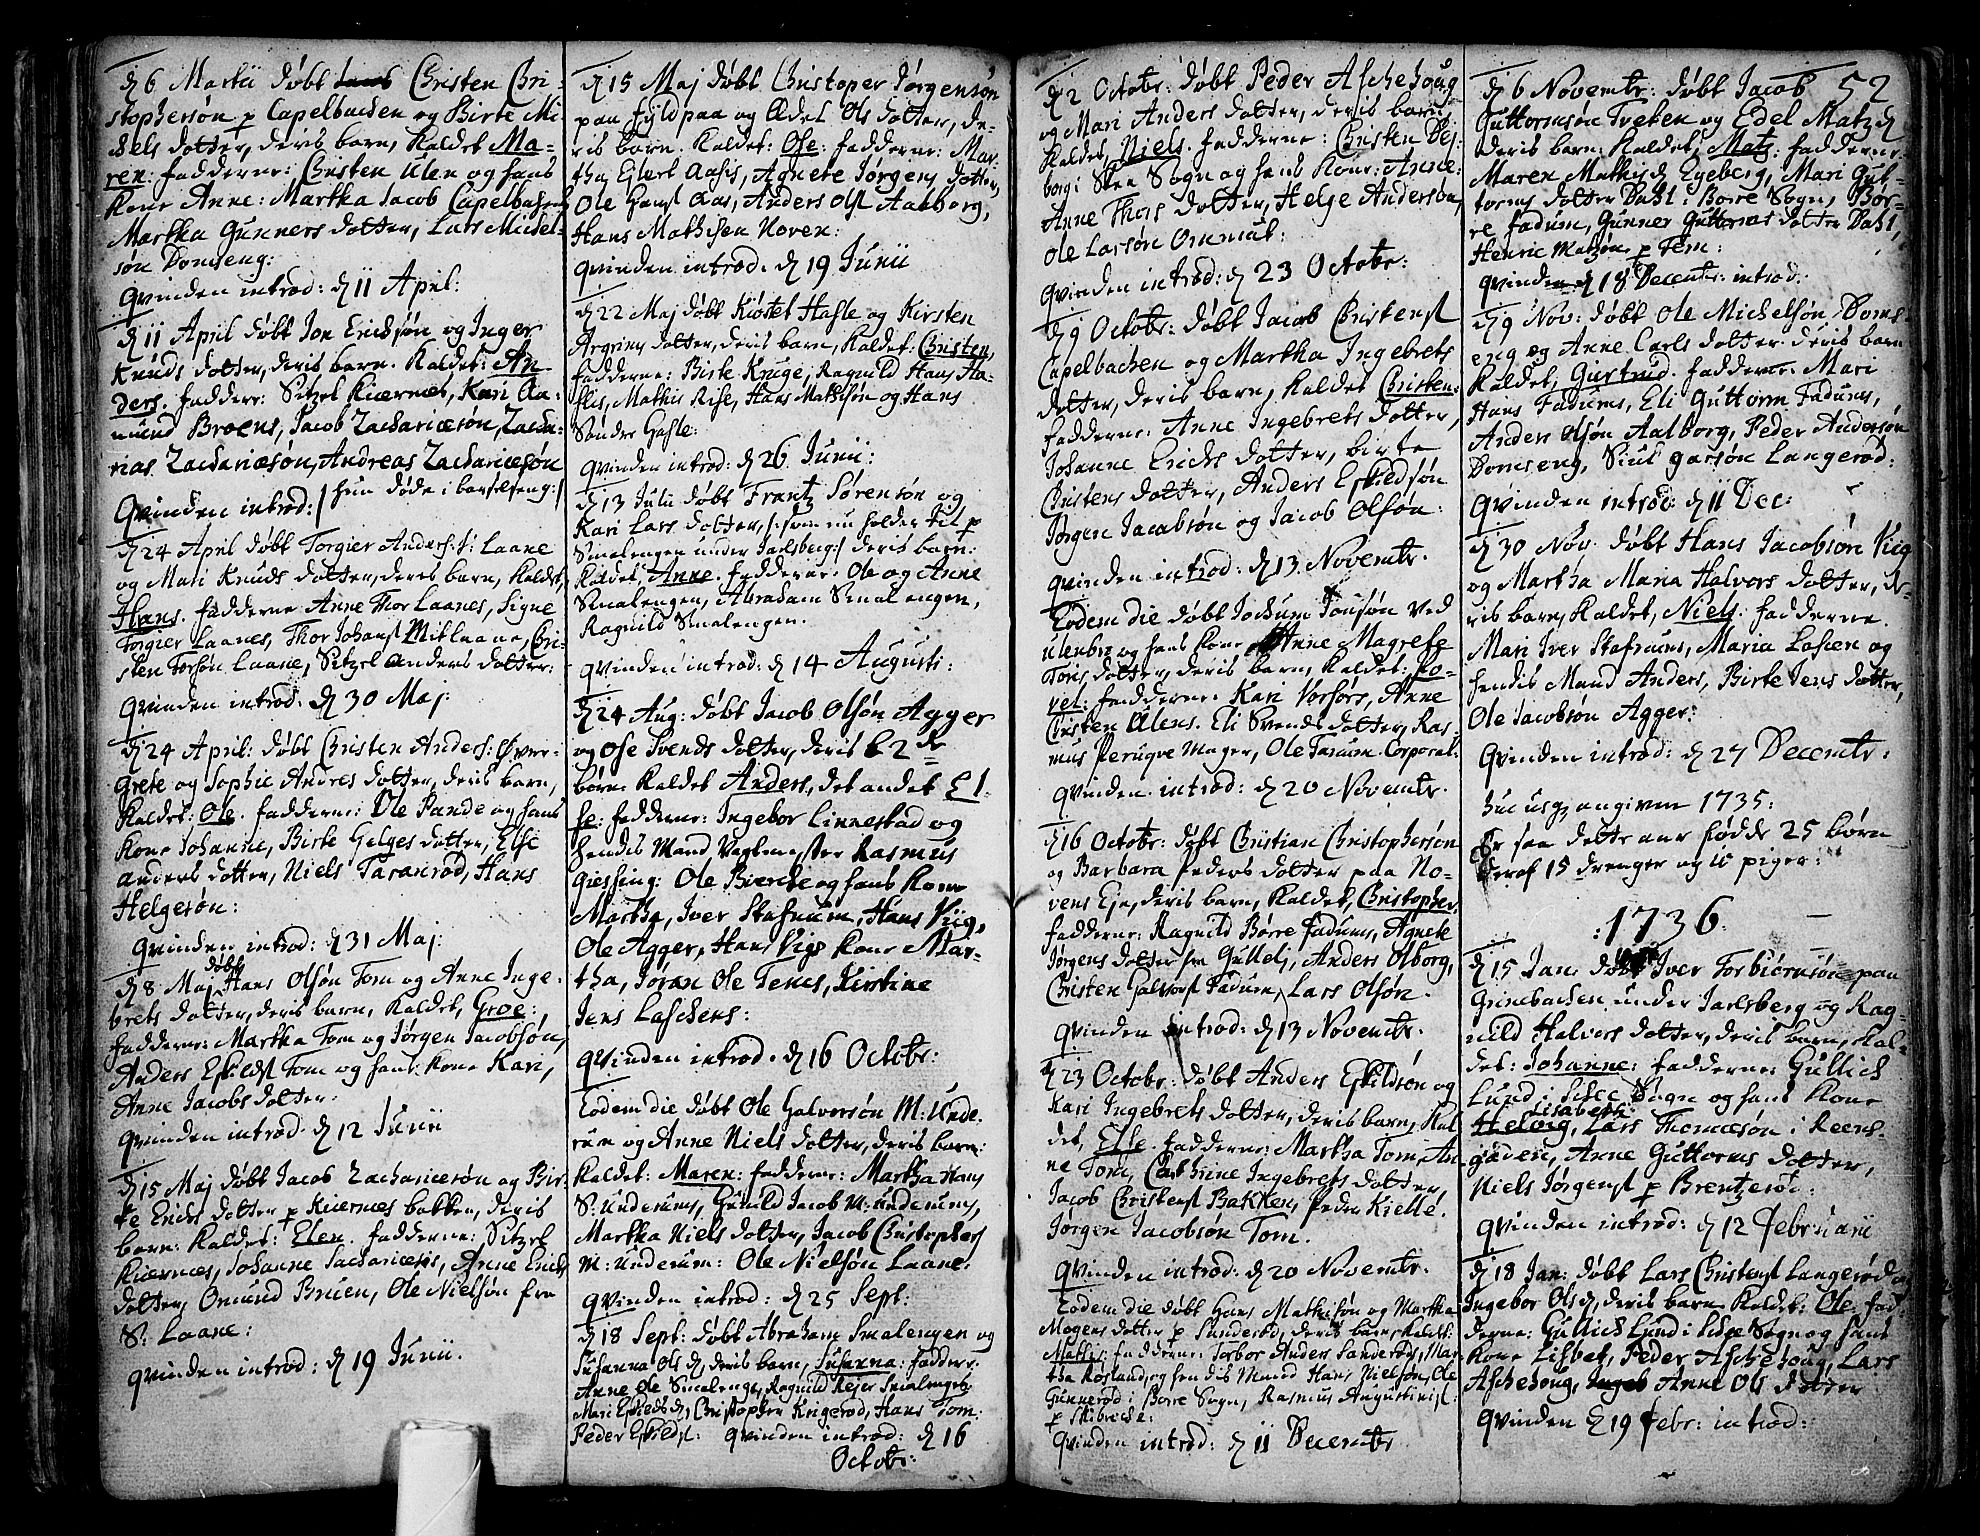 d 6 Martii døbt Christen Chri-
stophersøn p Capelbachen og Birte Mi-
chels dotter, deris barn, kaldet Ma-
ren: fadderne: Christen Ulen og hans
kone Anne: Martha Jacob Capelbachen
Martha Gunners dotter, Lars Michel-
søn Domseng:
Qvinden introd: d 11 April:
d 11 April døbt Jon Erichsøn og Inger
Knuds dotter, deris barn. kaldet: An-
ders. fadderne: Sitzel Kiernæs, Kari Aa-
mund Broens, Jacob Zachariæsøn, Zacha-
rias Zachariæsøn, Andreas Zachariæsøn
Qvinden introd: / hun døde i barselseng: /
d 24 April døbt Torgier Anders: s: Laane
og Mari Knuds dotter, deris barn, kaldet,
Hans. fadderne Anne Thor Laanes, Signe
Torgier Laanes, Thor Johans Mitlaane, Chri-
sten Torsøn Laane, Sitzel Anders dotter:
Qvinden introd: d 30 Maj:
d 24 April: døbt Christen Anders: Ø ver-
Grete og Sophie Andres dotter, deris barn,
kaldet: Ole. fadderne: Ole Pande og hans
kone Johanne, Birte Helges dotter, Else
Anders dotter, Niels Taranrød, Hans
Helgesøn:
Qvinden introd: d 31 Maj:
d 8 Maj døbt Hans Olsøn Tom og Anne Inge-
brets dotter, deris barn, kaldet, Groe:,
fadderne: Martha Tom og Jørgen Jacobsøn,
Anders Eskilds Tom og hans kone Kari,
Anne Jacobs dotter:
Qvinden introd. d 12 Junii
d 15 Maj døbt Jacob Zachariæsøn og Bir-
te Erichs dotter p Kiernæs bakken, deris
barn: kaldet: Elen. fadderne: Sitzel
Kiernæs, Johanne Zachariæsis, Anne Erichs
dotter, Omund Bruen, Ole Nielsøn fra
S: Laane:
Qvinden introd: d 19 Junii.
d 15 Maj døbt Christopher Jørgensøn
paa Fyldpaa og Ædel Ols dotter, de-
ris barn. kaldet: Ole: fadderne: Mar-
tha Elert Aasis, Agnete Jørgens dotter,
Ole Hans Aas, Anders Ols Aalborg,
Hans Mathisen Noren:
Qvinden introd. d 19 Junii
d 22 Maj døbt Kiøstel Hasle og Kirsten
Argrims dotter, deris barn, kaldet: Christen,
fadderne: Birte Kruge, Ragnild Hans Ha-
slis, Mathis Rise, Hans Mathisøn og Hans
Søndre Hasle:
Qvinden introd: d 26 Junii:
d 13 Julii døbt Frantz Sørensøn og
Kari Lars dotter, /: som nu holder til p
Smalengen under Jarlsberg:/ deris barn:
kaldet, Anne. fadderne: Ole og Anne
Smalengen, Abraham Smalengen,
Ragnild Smalengen.
Qvinden introd: d 14 Augusti:
d 24 Aug: døbt Jacob Olsøn Agger
og Ose Svends dotter, deris 2de
børn. kaldet Anders, det andet El-
se: fadderne: Ingebor Linnestad og
hendis Mand Vagtmester Rasmus
Giessing: Ole Bierche og hans kone
Martha, Iver Stafnum, Hans Viig,
Ole Agger, Hans Vigs kone Mar-
tha, Jøran Ole Tenes, Kirstine
Jens Laschens:
Qvinden introd. d 16 Octobr:
Eodem die døbt Ole Halversøn M: Unde-
rum og Anne Niels dotter, deris barn:
kaldet: Maren: fadderne: Martha Hans
S: Underums, Gunild Jacob M: Underums,
Martha Niels dotter, Jacob Christophers
M: Underum: Ole Nielsøn Laane.
Qvinden introd: d 25 Sept:
d 18 Sept: døbt Abraham Smalengen og
Susanna Ols d, deris barn, Susanna: fadder:
Anne Ole Smalenge, Ragnild Rejer Smalengen
Mari Eskilds d, Christopher Krigerød, Hans Tom:
Peder Eskilds: Qvinden introd: d 16
Octobr:
d 2 Octobr: døbt Peder Aschehoug
og Mari Anders dotter, deris barn
kaldet, Niels. fadderne: Christen Vej-
borg i Skee Sogn og hans kone: Anne:
Anne Thors dotter, Helge Andersøn,
Ole Larsøn Ommut:
Qvinden introd: d 23 Octobr:
d 9 Octobr: døbt Jacob Christens
Capelbachen og Martha Ingebrets
dotter, deris barn, kaldet Christen:
fadderne: Anne Ingebrets dotter,
Johanne Erichs dotter, birte
Christens dotter, Anders Eskildsøn
Jørgen Jacobsøn og Jacob Olsøn:
Qvinden introd: d 13 Novembr.
Eodem die døbt Jochum Jonsøn ved
Ulenbro og hans kone Anne Magrete
Toris dotter, deris barn, kaldet: Po-
vel: fadderne: Kari Vorførs, Anne
Christen Ulens. Eli Svends dotter, Ras-
mus Peruqve Mager, Ole Farum. Corporal:
Qvinden. introd: d 20 Novembr.
d 16 Octobr: døbt Christian Christophersøn
og Barbara Peders dotter paa No-
rens Eje, deris barn, kaldet, Christopher,
fadderne: Ragnild Børre Fadums, Agnete
Jørgens dotter fra Gullelj, Anders Olborg,
Christen Halvors Fadum, Lars Olsøn.
Qvinden introd: d 13 Novembr.
d 23 Octobr: døbt Anders Eskildsøn og
Kari Ingebrets dotter, deris barn, kal-
det, Else. fadderne: Martha Tom, An-
ne Tom, Cathrine Ingebrets dotter,
Jacob Christens Bakken, Peder Kielle.
Jørgen Jacobsøn Tom.
Qvinden introd: d 20 Novembr.
Eodem die døbt Hans Mathisøn og Martha
Mogens dotter p Sanderød, deris barn, kaldet:
Mathis: fadderne: Torbor Anders Sanderøds, Mar-
tha Røsland, og hendis Mand Hans Nielsøn, Ole
Gunnerød i Borre Sogn, Rasmus Augustinis:
p Skibreche:
Qvinden introd: d 11 Decembr
52
d 6 Novembr: døbt Jacob
Guttormsøn Tveten og Edel Matz d
deris barn: kaldet, Matz: fadderne:
Maren Mathis d Egeberg, Mari Gut-
torms dotter Dahl i Borre Sogn, Bør-
re Fadum, Gunner Guttorms dotter Dahl,
Henric Matzøn p Fem:
Qvinden d 18 Decembr: introd:
d 9 Nov: døbt Ole Michelsøn Doms-
eng og Anne Carls dotter deris barn
kaldet, Gurtrud. fadderne: Mari
Hans Fadums, Eli Guttorm Fadums,
Anders Olsøn Aalborg, Peder Andersøn
Domseng, Siul Larsøn Langerød:
Qvinden introd: d 11 Dec:
d 30 Nov. døbt Hans Jacobsøn Viig
og Martha Maria Halvors dotter, de-
ris barn, kaldet, Niels: fadderne.
Mari Iver Stafnums, Maria Laschen og
hendis Mand Anders, Birte Jens dotter,
Ole Jacobsøn Agger:
Qvinden introd: d 27 Decembr:
huc usq; angiver 1735:
Er saa dette aar fødde 25 børn
deraf 15 drenger og 10 piger:
:1736:
d 15 Jan: døbt Iver Torbiørnsøn paa
Grinebachen under Jarlsberg og Rag-
nild Halvors dotter, deris barn, kal-
det: Johanne: fadderne: Gullich
Lund i Skee Sogn og hans kone
Lisabeth
Helvig, Lars Thomæsøn i Reens-
gaden, Anne Guttorms dotter,
Niels Jørgens p Brentzerød:
Qvinden introd: d 12 Februarii
d 18 Jan: døbt Lars Christens Langerød og
Ingebor Ols d, deris barn kaldet: Ole: fad-
derne: Gullich Lund i Skee Sogn og hans
kone Lisbet, Peder Aschehoug, Lars
Aschehoug, Anne Ols dotter
Qvinden d 19 Febr: introd: